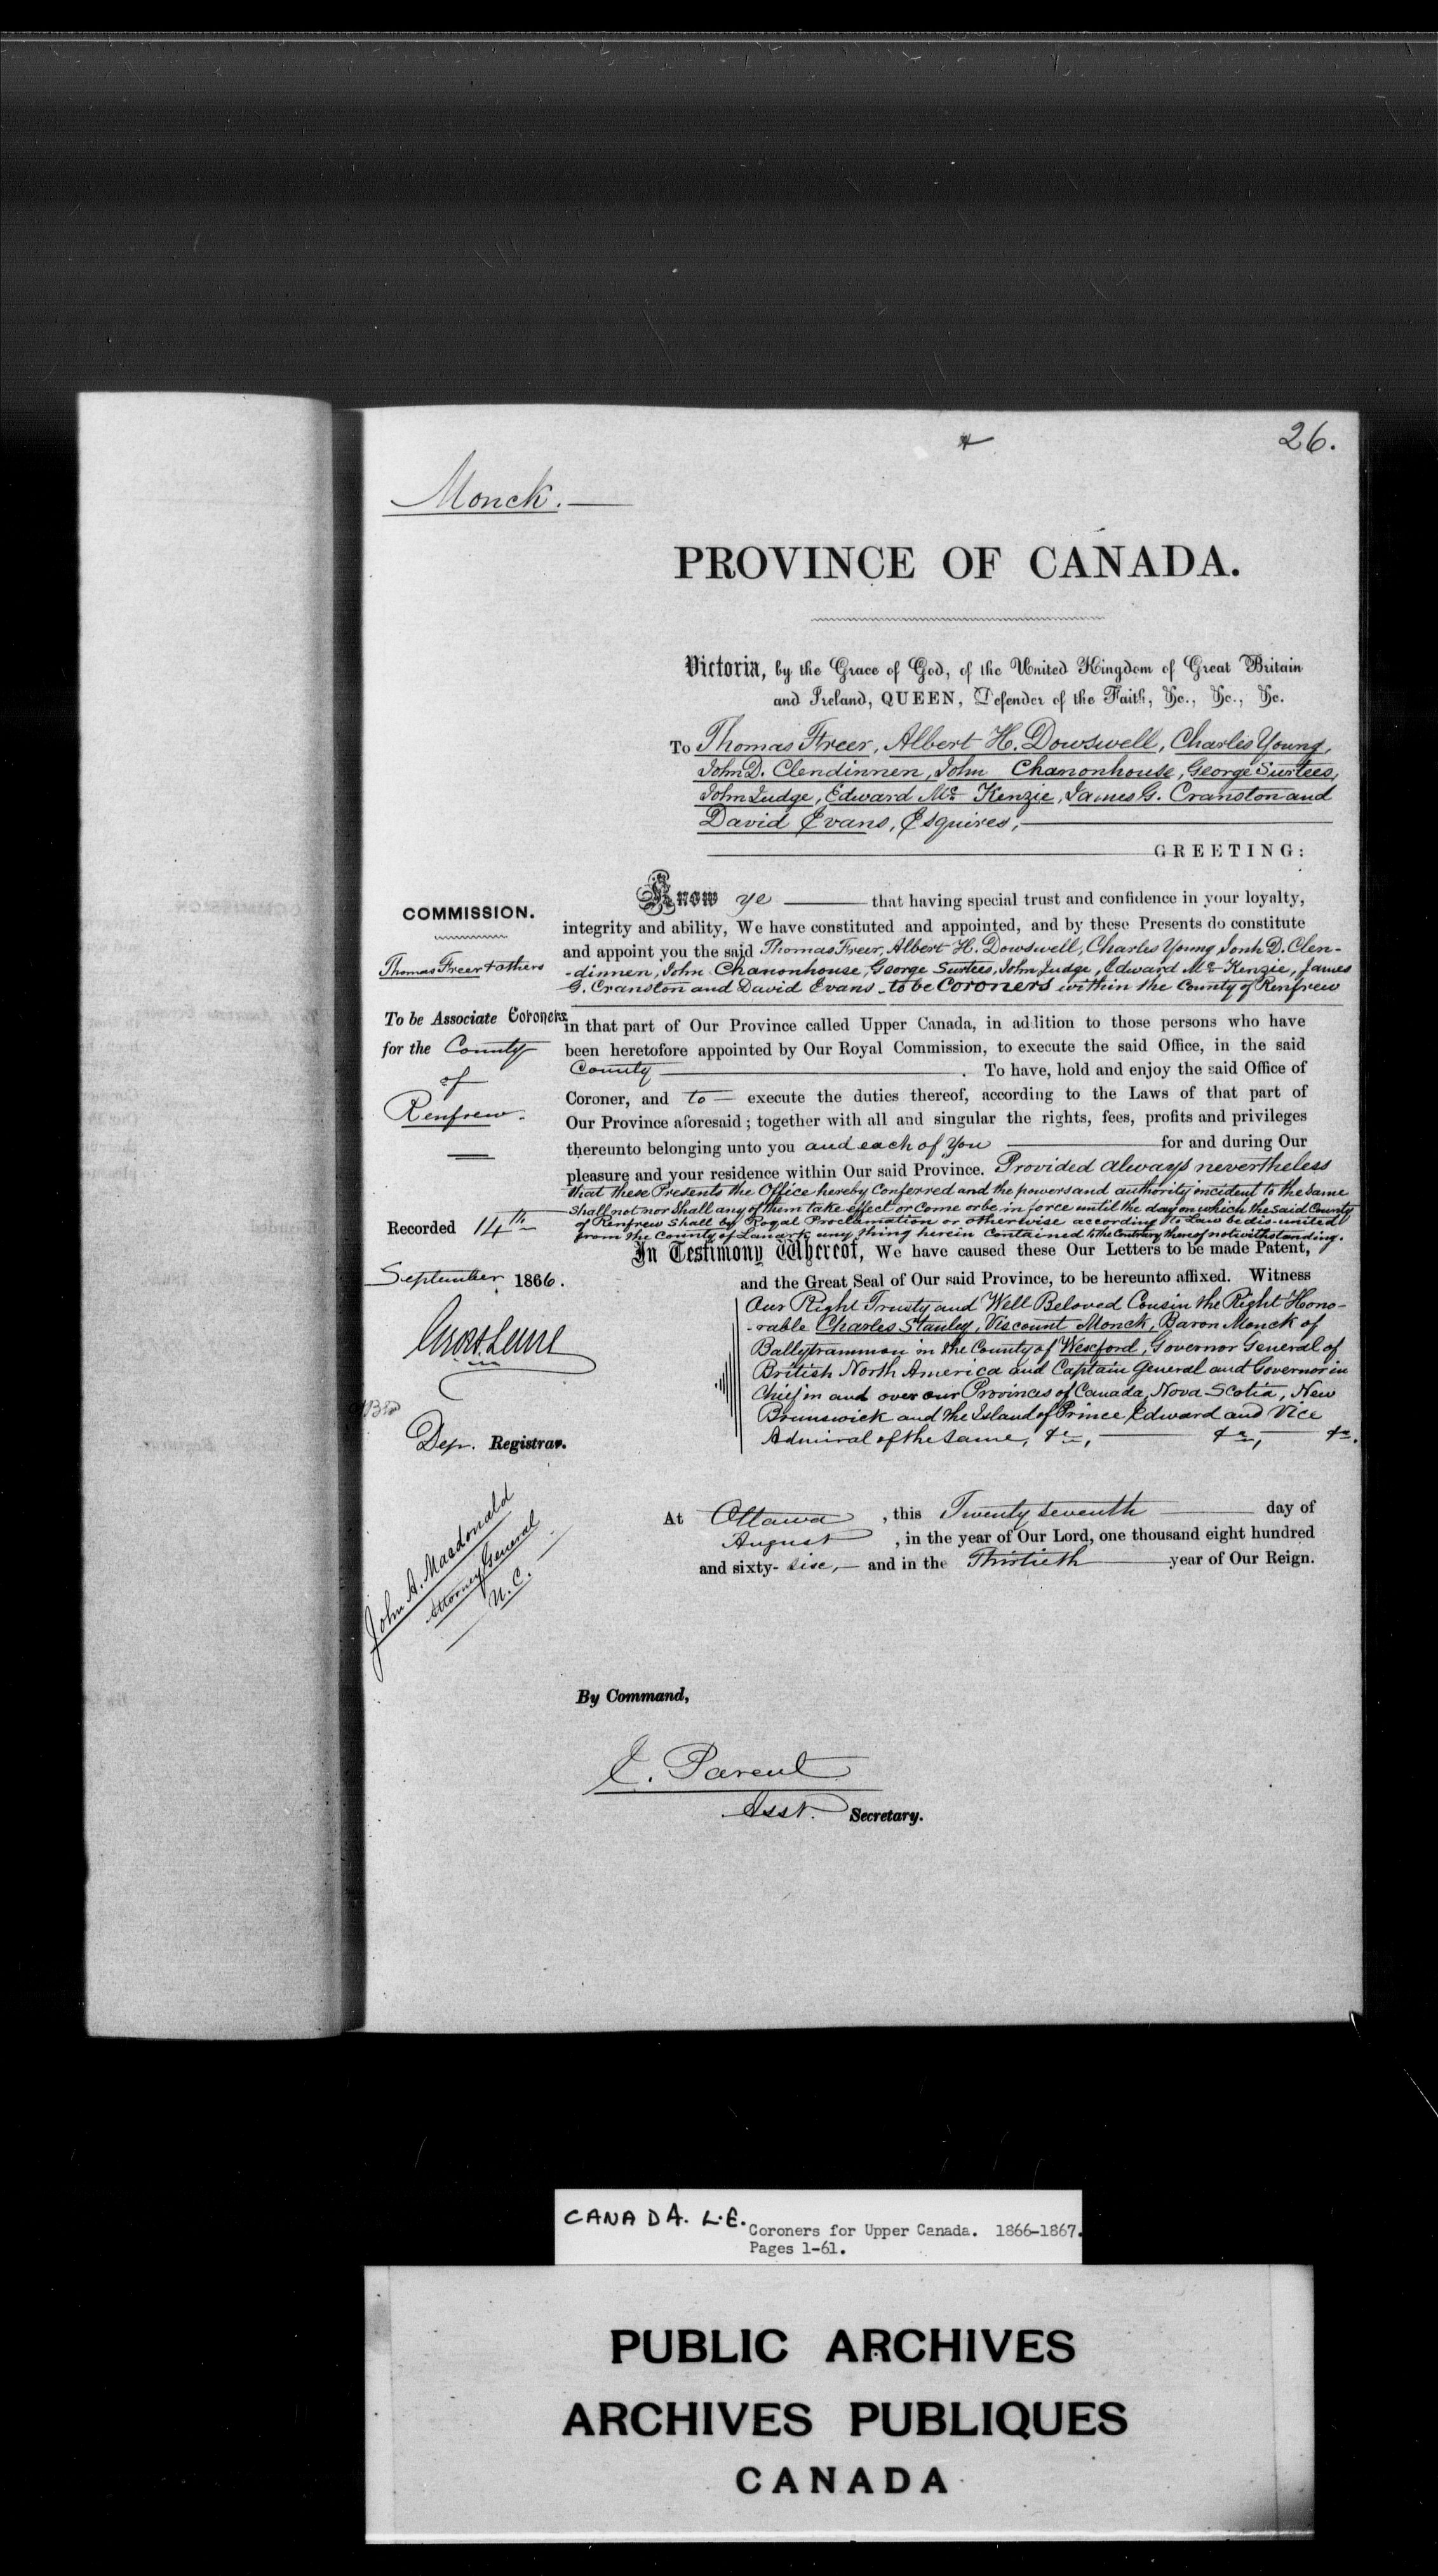 26.
Monck.
PROVINCE OF CANADA.
Victoria, by the Grace of God, of the United Kingdom of Great Britain
and Ireland, QUEEN, Defender of the Faith, &c., &c., &c.
To Thomas Freer, Albert H. Dowswell, Charles Young,
John D. Clendinnen, John Chanonhouse, George Surtees,
John Judge, Edward Mc Kenzie, James G. Cranston and
David Evans, Esquires,
GREETING:
COMMISSION.
Thomas Freer & others
To be Associate Coroners
for the County
of
Renfrew.
Know ye that having special trust and confidence in your loyalty,
integrity and ability, We have constituted and appointed, and by these Presents do constitute
and appoint you the said Thomas Freer, Albert H. Dowswell, Charles Young, Jonh D. Clen-
-dinnen, John Chanonhouse, George Surtees, John Judge, Edward Mc Kenzie, James
G. Cranston and David Evans to be Coroners within the County of Renfrew
in that part of Our Province called Upper Canada, in addition to those persons who have
been heretofore appointed by Our Royal Commission, to execute the said Office, in the said
County . To have, hold and enjoy the said Office of
Coroner, and to execute the duties thereof, according to the Laws of that part of
Our Province aforesaid; together with all and singular the rights, fees, profits and privileges
thereunto belonging unto you and each of You for and during Our
pleasure and your residence within Our said Province. Provided always nevertheless
that these Presents the Office hereby Conferred and the powers and authority incident to the Same
Shall not nor Shall any of them take effect or Come or be in force until the day on which the Said County
of Renfrew Shall by Royal Proclamation or otherwise according to Law be dis-united
from the County of Lanark any thing herein Contained to the Contrary thereof notwithstanding.
Recorded 14th
September 1866.
Dep. Registrar.
In Testimony Whereof, We have caused these Our Letters to be made Patent,
and the Great Seal of Our said Province, to be hereunto affixed. Witness
Our Right Trusty and Well Beloved Cousin the Right Hono-
-rable Charles Stanley, Viscount Monck, Baron Monck of
Ballytrammon in the County of Wexford, Governor General of
British North America and Captain General and Governor in
Chief in and over our Provinces of Canada, Nova Scotia, New
Brunswick and the Island of Prince Edward and Vice
Admiral of the Same, &c, &c, &c.
At Ottawa, this Twenty Seventh day of
August, in the year of Our Lord, one thousand eight hundred
and sixty- Six, and in the Thirtieth year of Our Reign.
John A. Macdonald
Attorney General
U.C.
By Command,
E. Parent
Asst. Secretary.
CANADA. L.E.
Coroners for Upper Canada. 1866-1867.
Pages 1-61.
PUBLIC ARCHIVES
ARCHIVES PUBLIQUES
CANADA